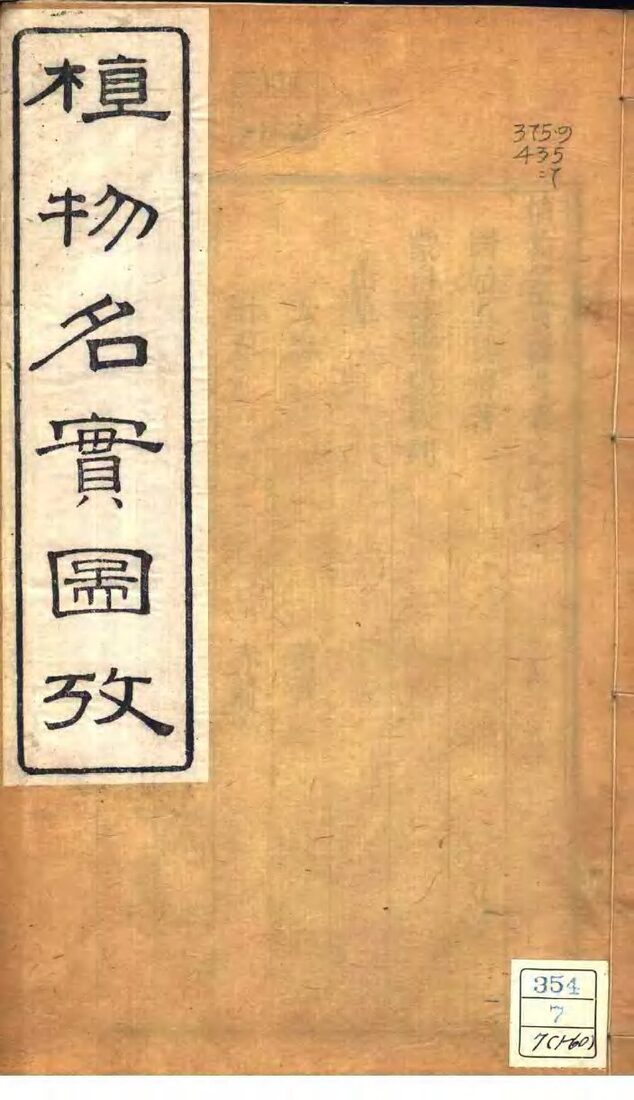 植物名實圖攷
375.9
435
354
7
7(1-60)